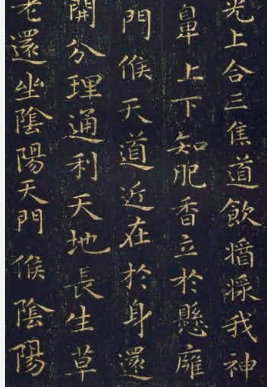 光上合三焦道飲醬漿我神
鼻上下知肥香立於懸廱
門候天道近在於身還
開分理通利天地長生草
老還坐陰陽天門候陰陽